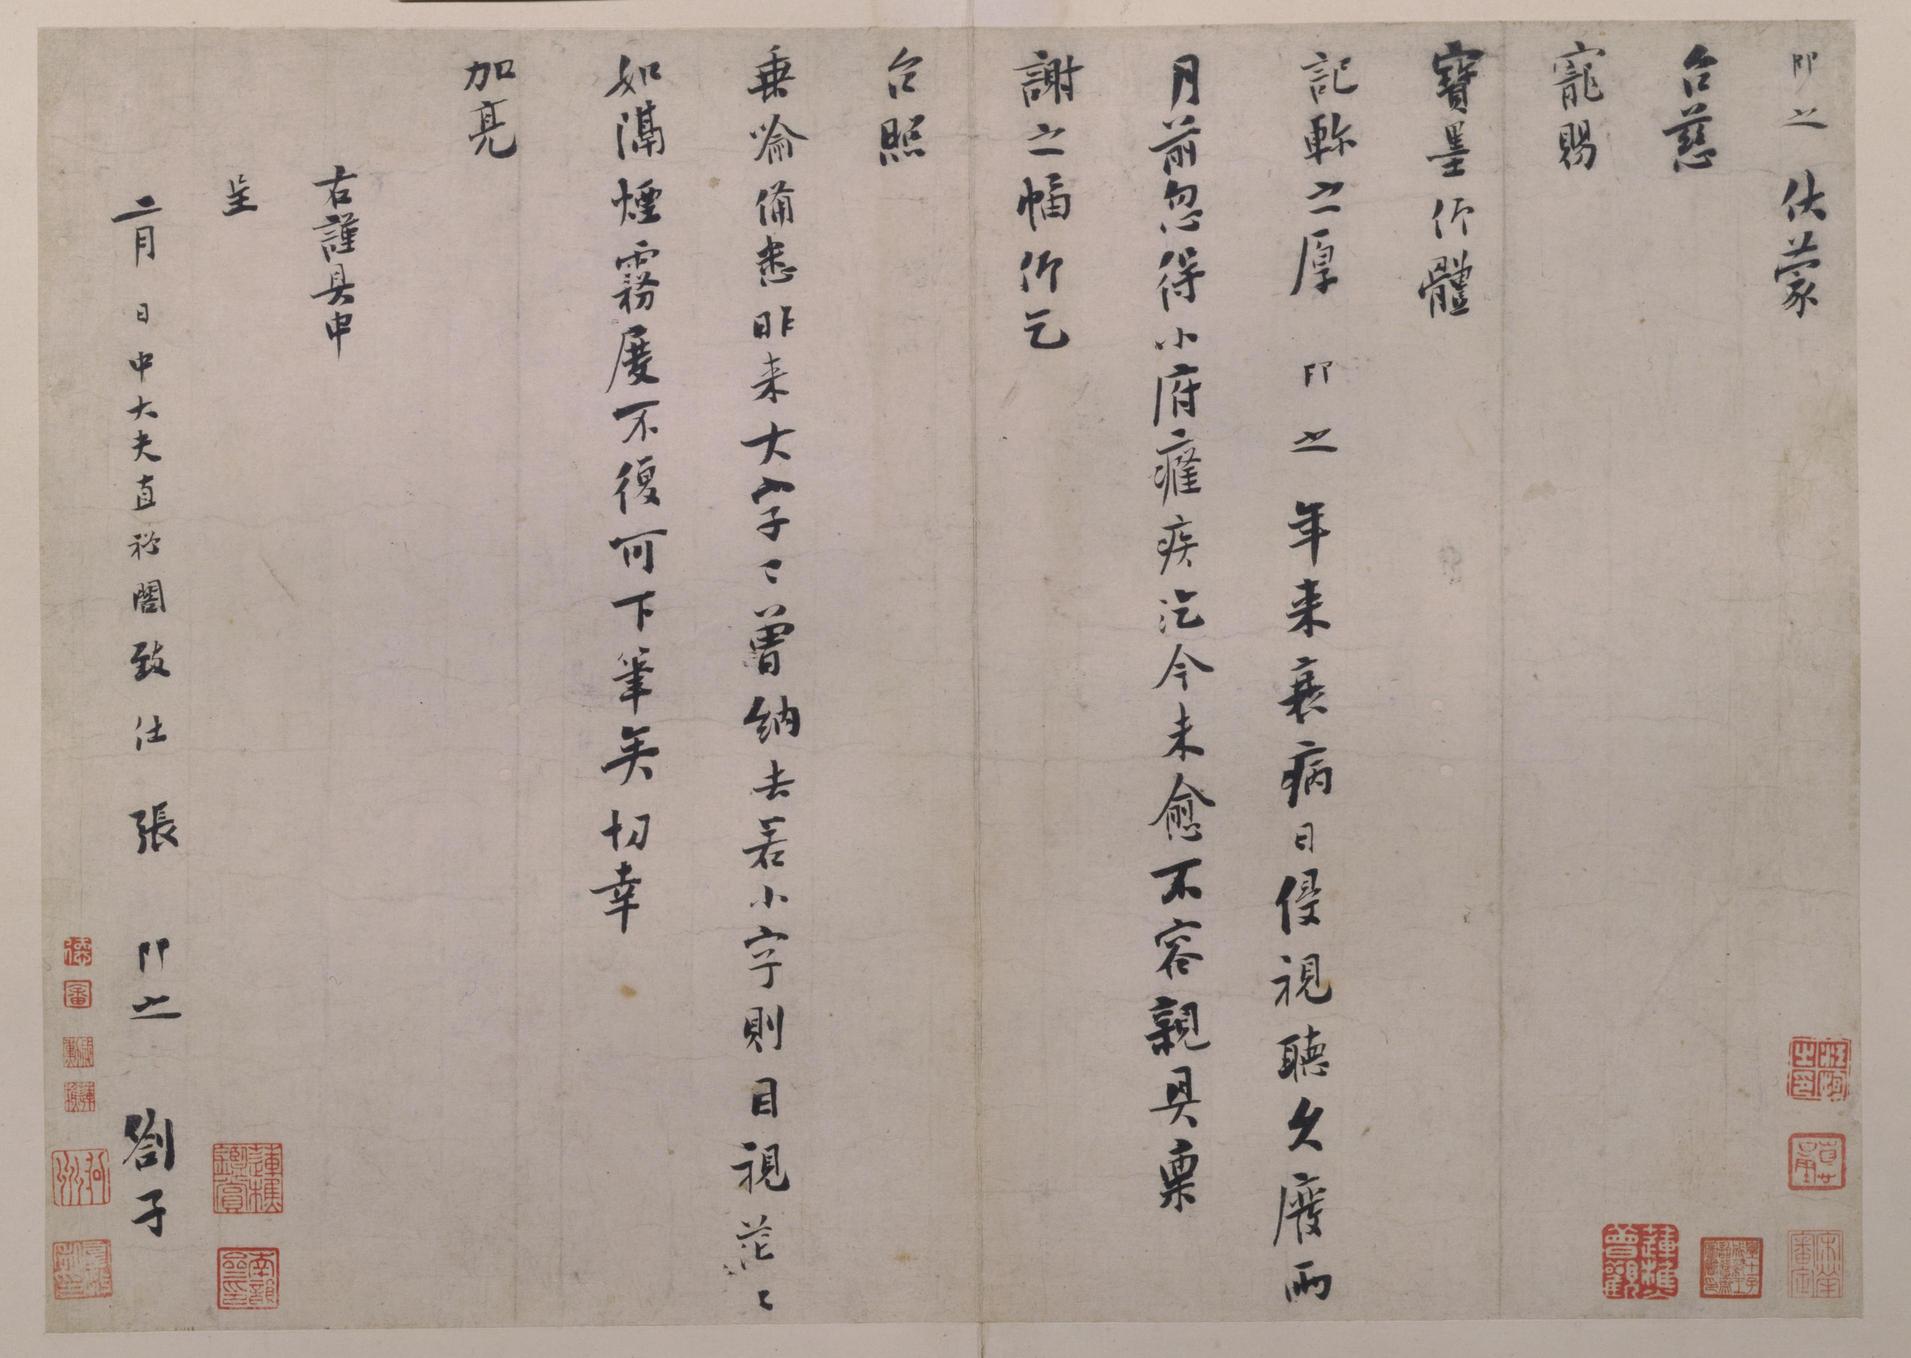 即之 伏蒙
台慈
寵賜
寶墨仰體
記軫之厚 即之 年來衰病日侵視聽久廢兩
月前忽得小府癰疾迄今未愈不容親具稟
謝之幅仰乞
台照
垂喩備悉昨來大字已曾納去若小字則目視茫〻
如隔煙霧屡不復可下筆矣切幸
加亮
右謹具申
呈
二月 日中大夫直祕閣致仕張 即之 劄子